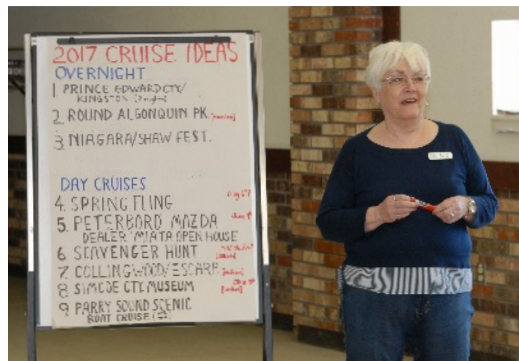 2017 CRUISE IDEAS
OVERNIGHT
1. PRINCE EDWARD CTY/
KINGSTON
2. ROUND ALGONQUIN PK.
3. NIAGARA/SHAW FEST.
DAY CRUISES
4. SPRING FLING
5. PETERBORO MAZDA
DEALER MIATA OPEN HOUSE
6 SCAVENGER HUNT
7. COLLINGWOOD/ESCARP
8 SIMCOE CTY MUSEUM
9 PARRY SOUND SCENIC
BOAT CRUISE